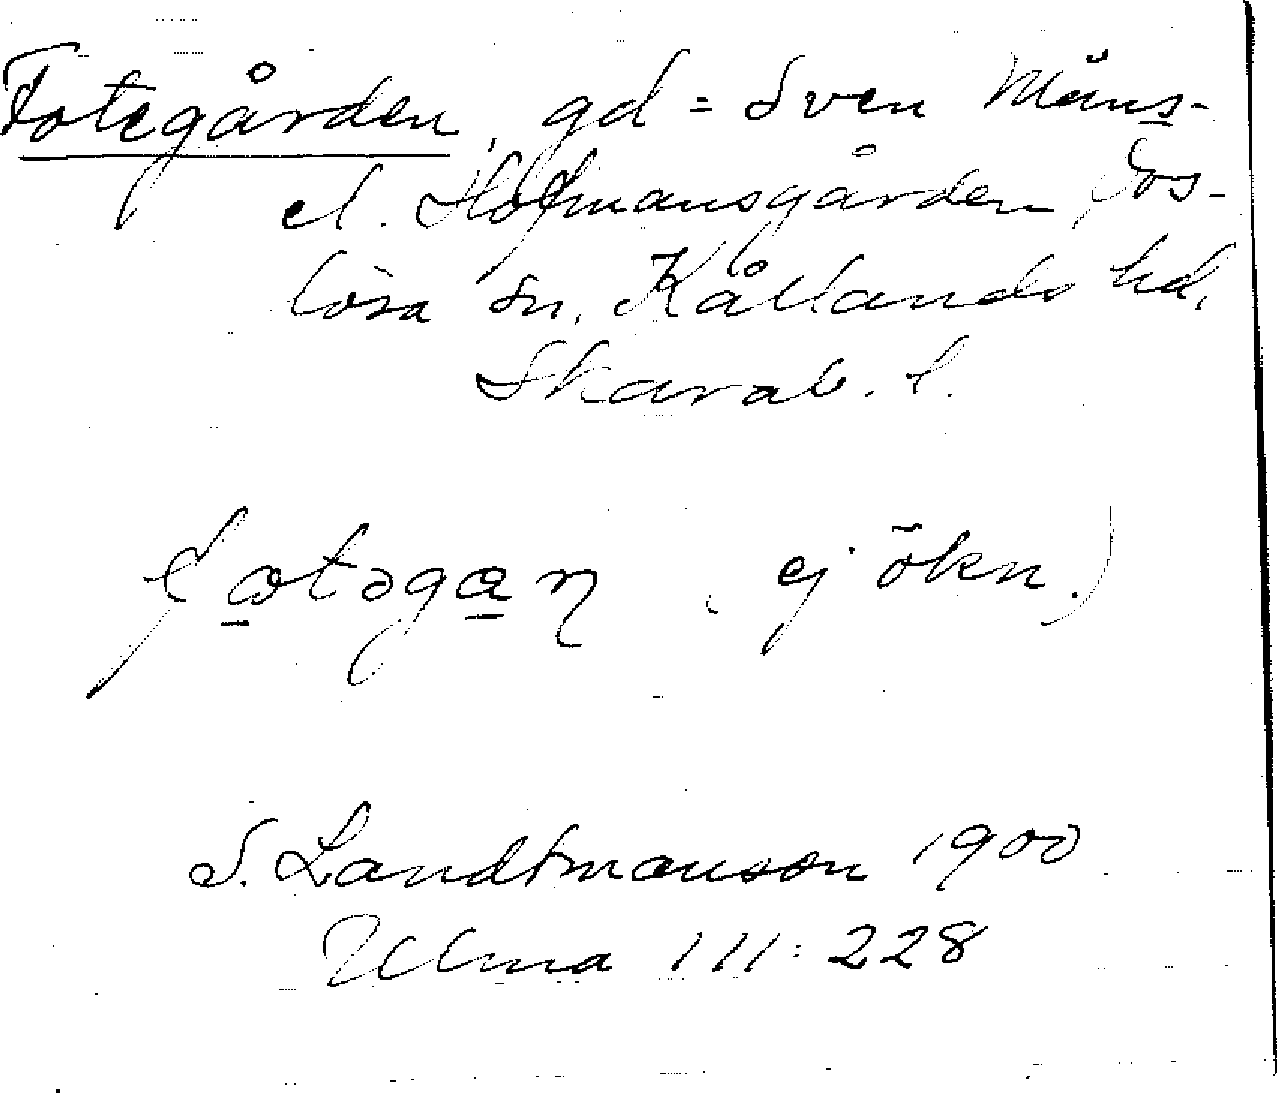 Fotegården, gd = Sven Måns-
el. Hofmansgården, Gös-
lösa sn, Kållands hd,
Skarab. l.
fotəgan (ej ökn.)
S. Landtmanson 1900
Ulma 111:228